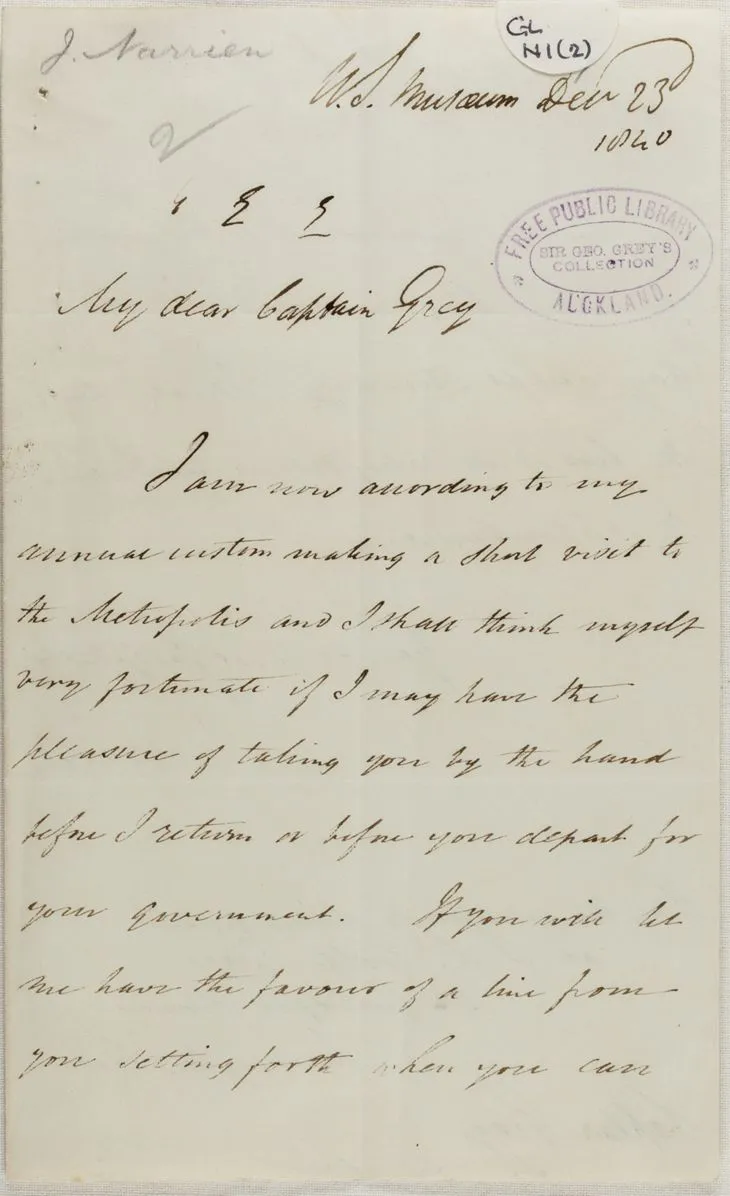 GL
N1(2)
J. Narrien
U.S. Museum Decr 23
1840
2
FREE PUBLIC LIBRARY
SIR GEO. GREY'S
COLLECTION
AUCKLAND.
My dear Captain Grey
I am now according to my
annual custom making a short visit to
the Metropolis and I shall think myself
very fortunate if I may have the
pleasure of taking you by the hand
before I return or before you depart for
your government. If you will let
me have the favour of a line from
you setting forth when you can